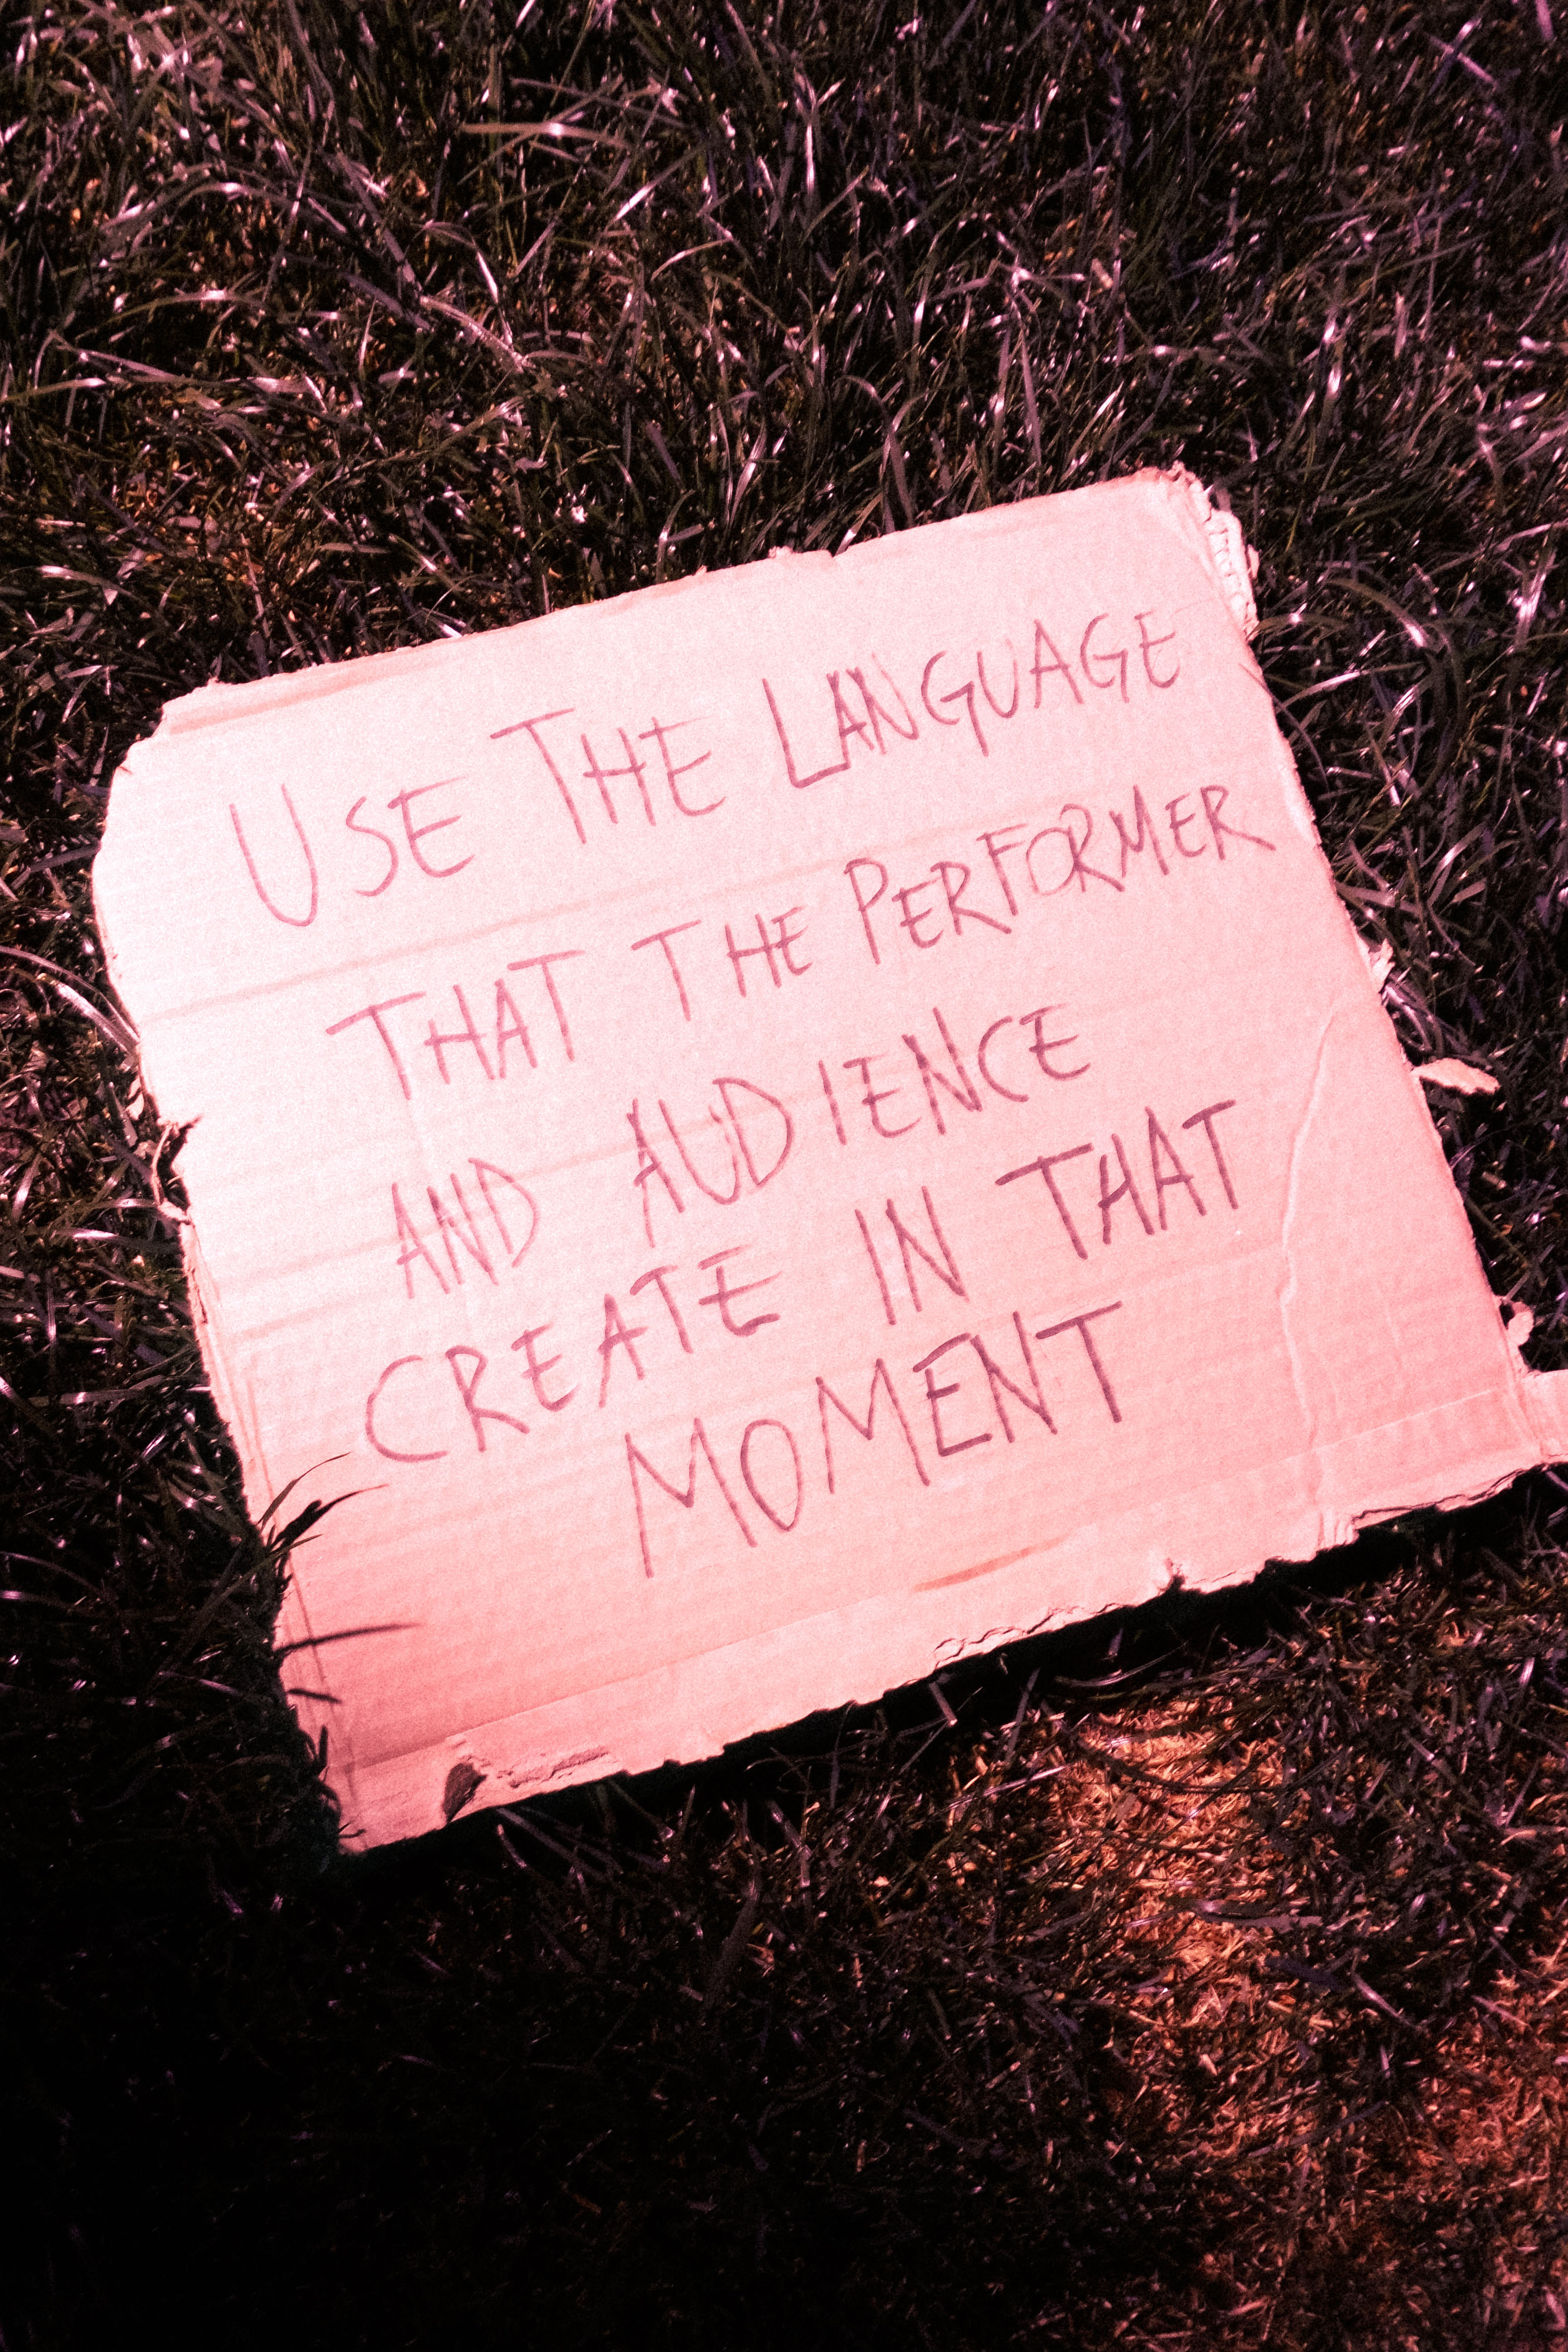 USE THE LANGUAGE
THAT THE PERFORMER
AND AUDIENCE
CREATE IN THAT
MOMENT